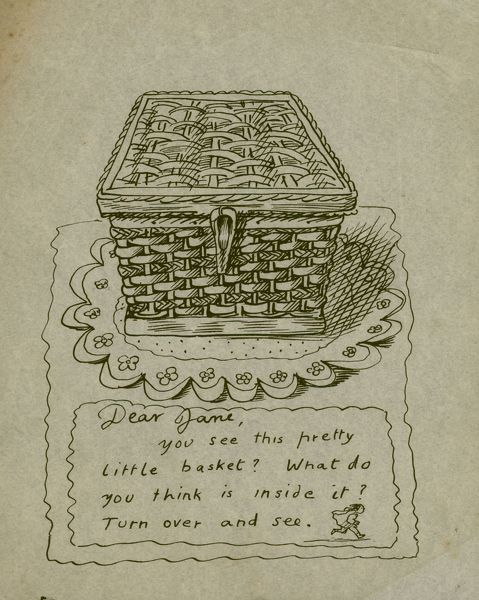 Dear Jane,
you see this pretty
little basket? What do
you think is inside it?
Turn over and see.